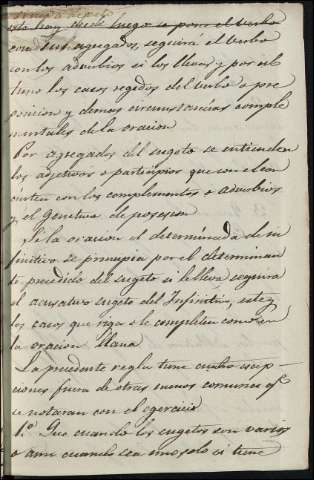 no hay desde luego se pone el verbo
con sus agregados, seguirá el verbo
con los adverbios si los lleva y por ul
timo los casos regidos del verbo o pre
posicion y demas circunstancias comple
mentales de la oracion
Por agregados del sugeto se entienden
los adjetivos o participios que con el con
ciertan con los complementos o adverbios
y el Genitivo de posesion
Si la oracion es determinada de in
finitivo se principia por el determinan
te precedido del sugeto si le lleva seguira
el acusativo sugeto del Infinitivo, este y
los casos que rija o le completen como en
la oracion llana
La precedente regla tiene cuatro escep
ciones fuera de otras menos comunes qe
se notaran con el egercicio
1.º Que cuando los sugetos son varios
o aun cuando sea uno solo si tiene